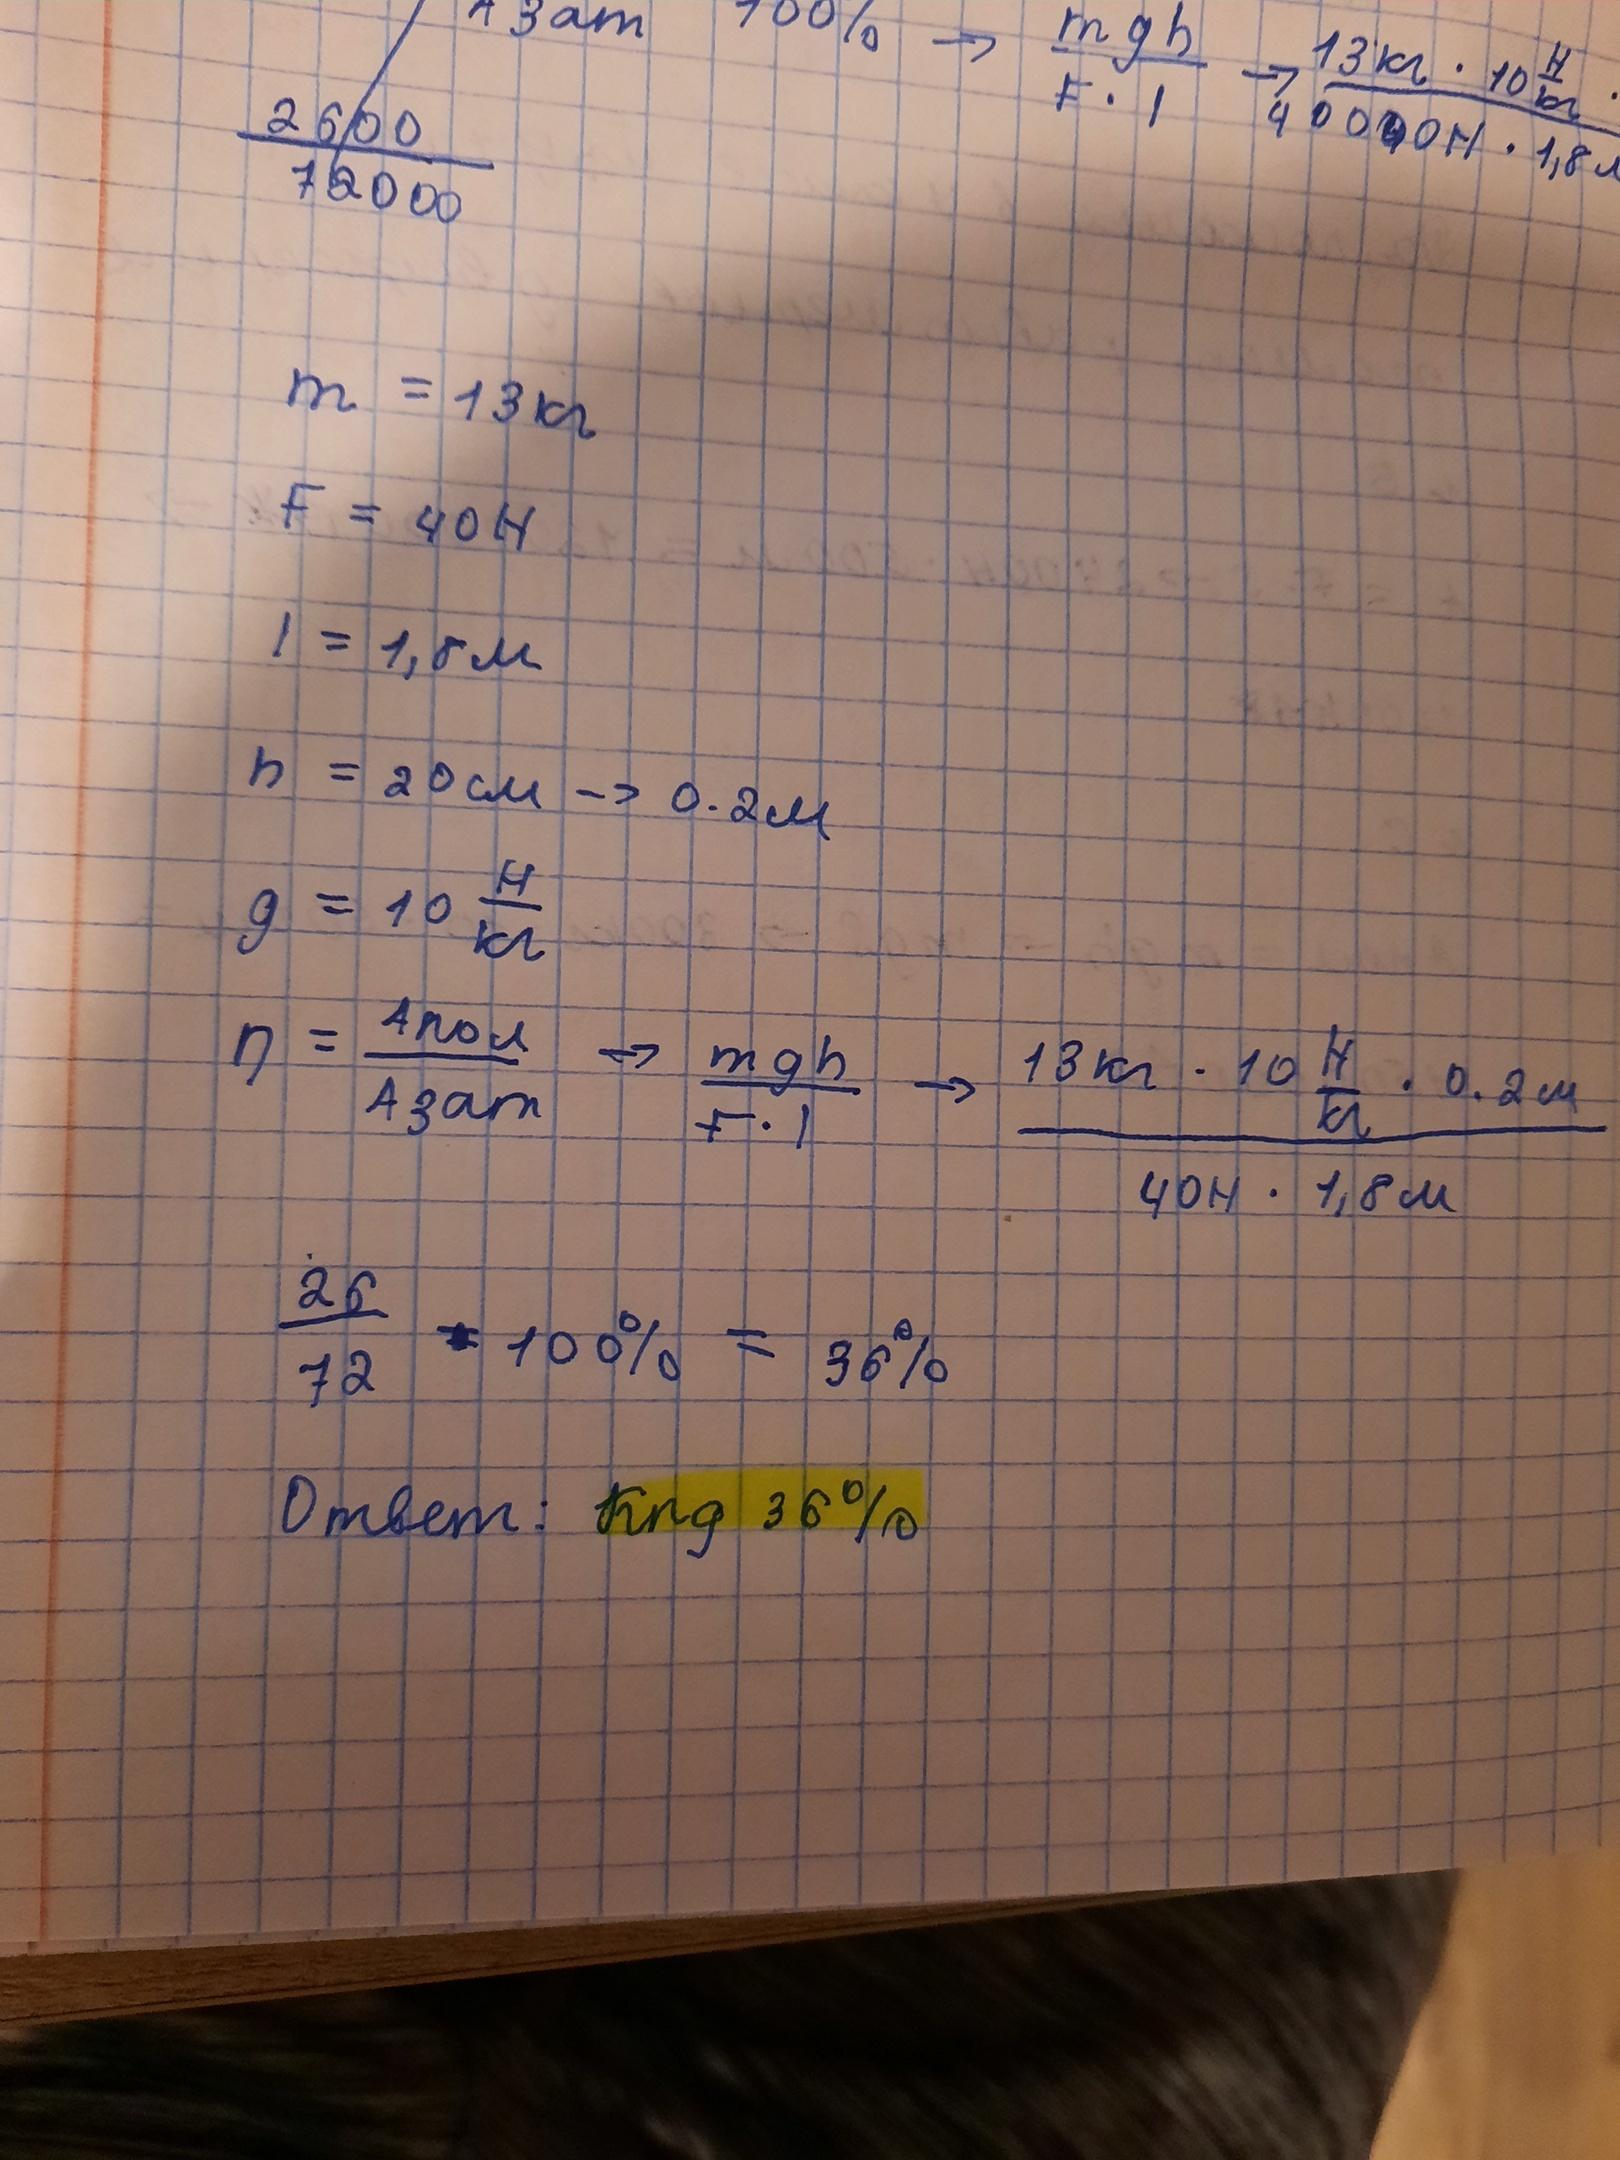 Aзат 100% → mgh / F · l → 13кг · 10 Н/кг ·
40000Н · 1,8м
2600
72000
m = 13кг
F = 40Н
l = 1,8м
h = 20см -> 0.2м
g = 10 Н/кг
η = Aпол / Aзат → mgh / F · l → 13кг · 10 Н/кг · 0.2м / 40Н · 1,8м
26 / 72 · 100% = 36%
Ответ: Кпд 36%